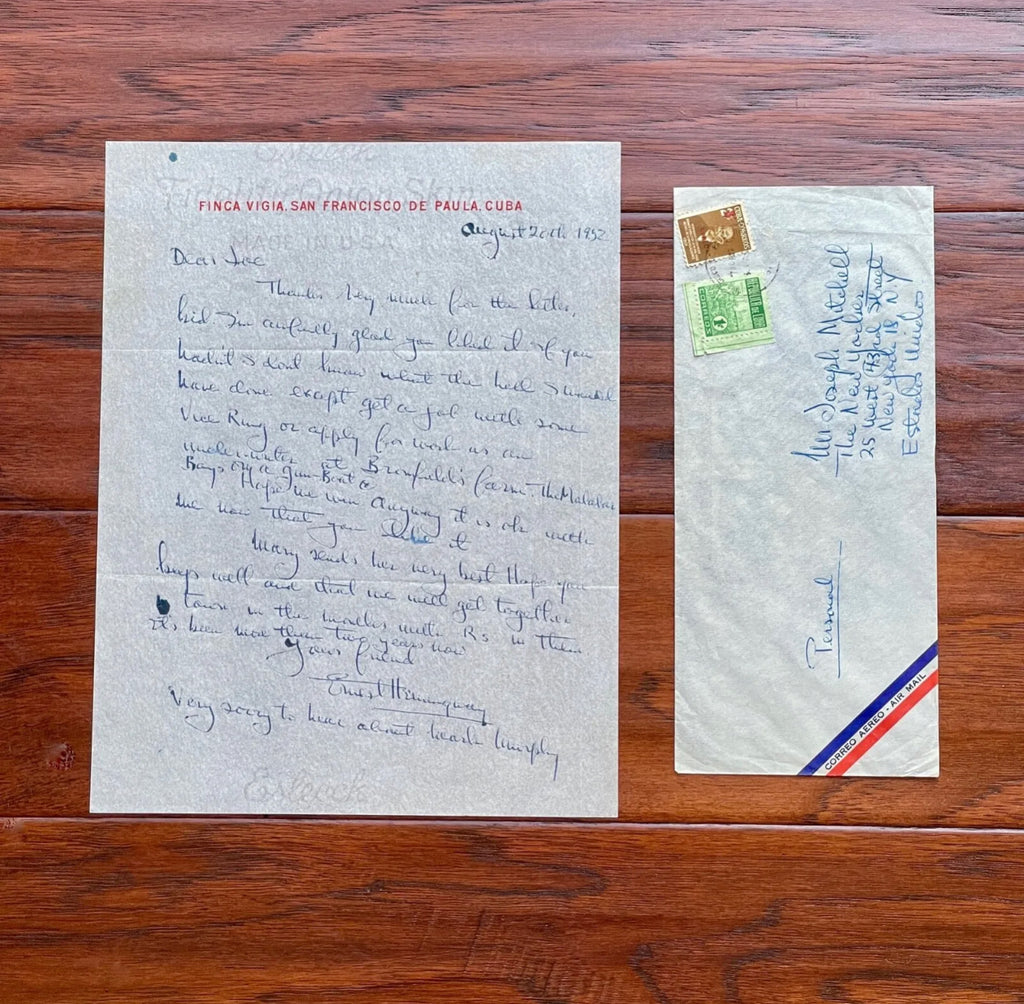 Esleeck
Fidelity Onion Skin
FINCA VIGIA, SAN FRANCISCO DE PAULA, CUBA
MADE IN U.S.A.
August 20th 1952
Dear Joe
Thanks very much for the letter,
kid. I'm awfully glad you liked it if you
hadn't I don't know what the hell I would
have done except get a job with some
Vice Ring or apply for work as an
under-writer at Bromfield's farm The Malabar
Boys on a
Hope we win Anyway it is ok with
me now that you like it
Mary sends her very best Hope you
keep well and that we will get together
in town in the months with Rs in them
It's been more than two years now
Your friend
Ernest Hemingway
Very sorry to hear about Murphy
Esleeck
CORREOS
REPUBLICA DE CUBA
1
CORREOS
Mr Joseph Mitchell
The New Yorker
25 West 43rd Street
New York 18 NY
Estados Unidos
Personal
CORREO AEREO - AIR MAIL